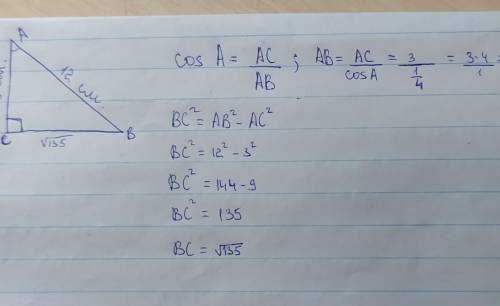 A
12 см.
C
√135
B
cos A = AC/AB ; AB = AC/cosA = 3/(1/4) = 3·4/1 =
BC² = AB² - AC²
BC² = 12² - 3²
BC² = 144 - 9
BC² = 135
BC = √135